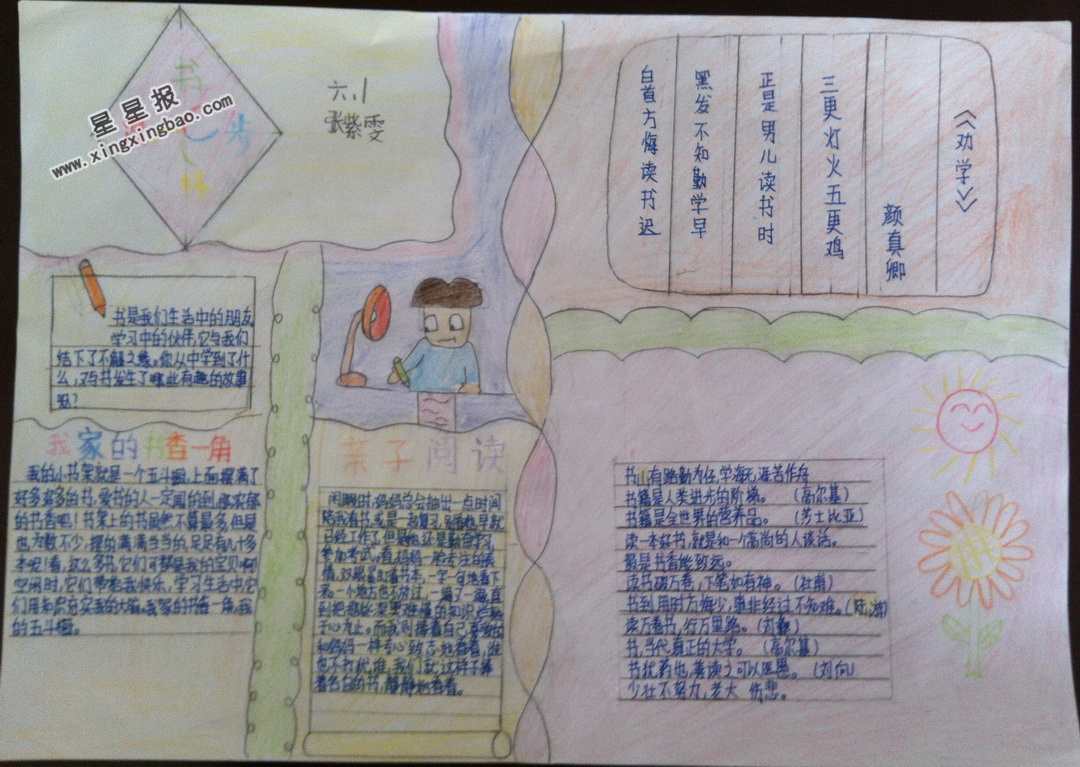 星星报
www.xingxingbao.com
书
林
六.1
张紫雯
《劝学》
颜真卿
三更灯火五更鸡
正是男儿读书时
黑发不知勤学早
白首方悔读书迟
书是我们生活中的朋友
学习中的伙伴,它与我们
结下了不解之缘。你从中学到了什
么,又与书发生了哪些有趣的故事
呢?
我家的书香一角
我的小书架就是一个五斗橱,上面摆满了
好多好多的书,爱书的人一定闻的到那浓郁
的书香吧!书架上的书虽然不算最多,但是
也为数不少,摆的满满当当的,足足有几十多
本呢!看,这么多书,它们可都是我的宝贝啊!
空闲时,它们带给我快乐,学习生活中它
们用知识充实我的大脑。我家的书香一角,我
的五斗橱。
亲子阅读
闲暇时,妈妈总会抽出一点时间
陪我看书,或是一起复习,妈妈早就
已经工作了,但她还是勤奋学习
参加考试,看,妈妈一脸专注的表
情,双眼紧盯着书本,一字一句地看下
来,一个地方也不放过,一遍又一遍,直
到把那些深奥难懂的知识
于心为止。而我则捧着自己喜爱的
和妈妈一样专心致志地看着,谁
也不打扰谁,我们就这样子捧
着各自的书,静静地看着。
书山有路勤为径,学海无涯苦作舟
书籍是人类进步的阶梯。(高尔基)
书籍是全世界的营养品。(莎士比亚)
读一本好书,就是和一个高尚的人谈话。
最是书香能致远。
读书破万卷,下笔如有神。(杜甫)
书到用时方悔少,事非经过不知难。(陆游)
读万卷书,行万里路。(刘彝)
书,当代真正的大学。(高尔基)
书犹药也,善读之可以医愚。(刘向)
少壮不努力,老大 伤悲。